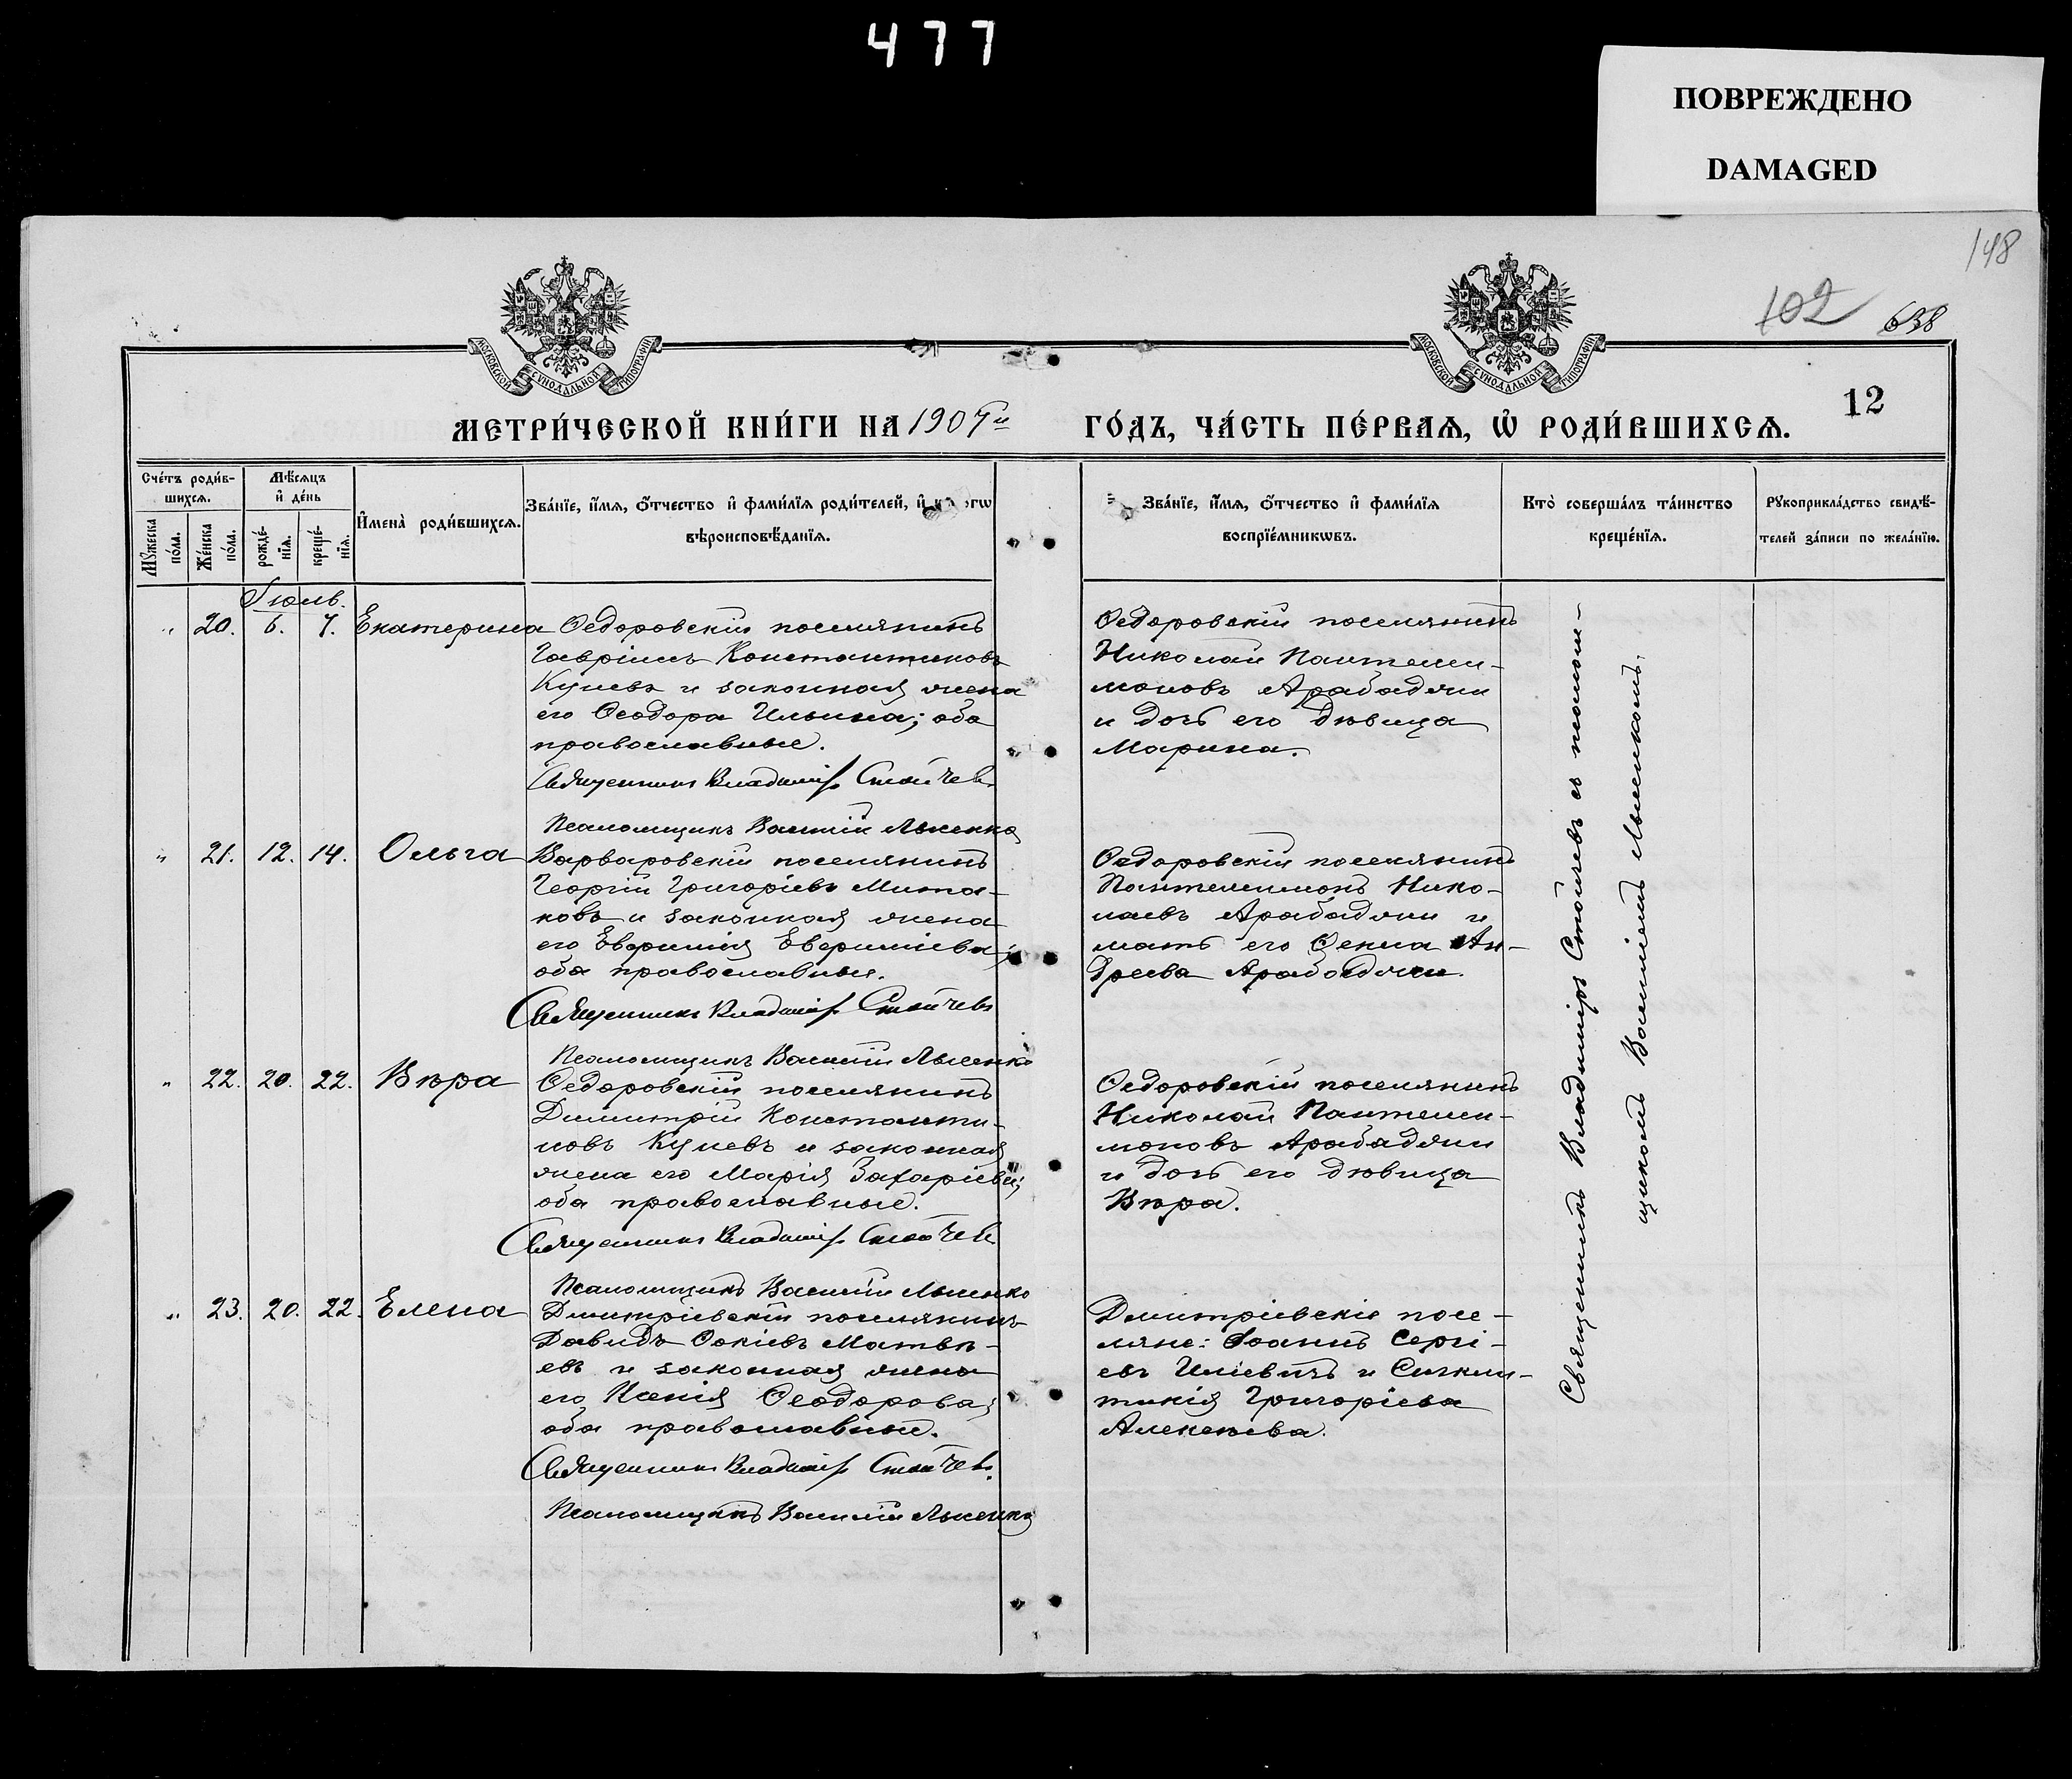 477
ПОВРЕЖДЕНО
DAMAGED
148
102
638
МОСКОВСКОЙ СѴНОДАЛЬНОЙ ТИПОГРАФІИ
МОСКОВСКОЙ СѴНОДАЛЬНОЙ ТИПОГРАФІИ
12
МЕТРИ́ЧЕСКОЙ КНИ́ГИ НА 1907й ГО́ДЪ, ЧА́СТЬ ПЕ́РВАѦ, Ѿ РОДИ́ВШИХСѦ.
Сче́тъ роди́в-
шихсѧ.
Мꙋ́жеска по́ла.
Же́нска по́ла.
Мѣ́сѧцъ
и҆ де́нь
рожде́-
нїѧ.
креще́-
нїѧ.
И҆мена̀ роди́вшихсѧ.
Зва́нїе, и҆́мѧ, ѻ҆́тчество и҆ фами́лїѧ роди́телей, и҆
вѣроисповѣ́данїѧ.
Зва́нїе, и҆́мѧ, ѻ҆́тчество и҆ фами́лїѧ
воспрїе́мникѡвъ.
Кто̀ соверша́лъ та́инство
креще́нїѧ.
Рꙋкоприкла́дство свидѣ́-
телей за́писи по жела́нїю.
Іюль.
" 20. 6. 7. Екатерина
Ѳедоровскій поселянинъ
Гавріилъ Константиновъ
Кулевъ и законная жена
его Ѳеодора Ильина; оба
православные.
Священникъ Владиміръ Стойчевъ
Псаломщикъ Василій Лысенко
Ѳедоровскій поселянинъ
Николай Пантелеи-
моновъ Арабаджи
и дочь его дѣвица
Марина.
" 21. 12. 14. Ольга
Варваровскій поселянинъ
Георгій Григоріевъ Мита-
ковъ и законная жена
его Евфимія Евфиміева;
оба православные.
Священникъ Владиміръ Стойчевъ
Псаломщикъ Василій Лысенко
Ѳедоровскій поселянинъ
Пантелеимонъ Нико-
лаевъ Арабаджи и
мать его Ѳекла Ан-
дреева Арабаджи.
" 22. 20. 22. Вѣра
Ѳедоровскій поселянинъ
Димитрій Константи-
новъ Кулевъ и законная
жена его Марія Захаріева;
оба православные.
Священникъ Владиміръ Стойчевъ
Псаломщикъ Василій Лысенко
Ѳедоровскій поселянинъ
Николай Пантелеи-
моновъ Арабаджи
и дочь его дѣвица
Вѣра.
" 23. 20. 22. Елена
Димитріевскій поселянинъ
Давидъ Матвѣ-
евъ и законная жена
его Ксенія Ѳеодорова;
оба православные.
Священникъ Владиміръ Стойчевъ.
Псаломщикъ Василій Лысенко
Димитріевскіе посе-
ляне: Іоаннъ Сергі-
евъ Иліевичъ и Синкли-
тикія Григоріева
Алексѣева.
Священникъ Владиміръ Стойчевъ съ псалом-
щикомъ Василіемъ Лысенкомъ.